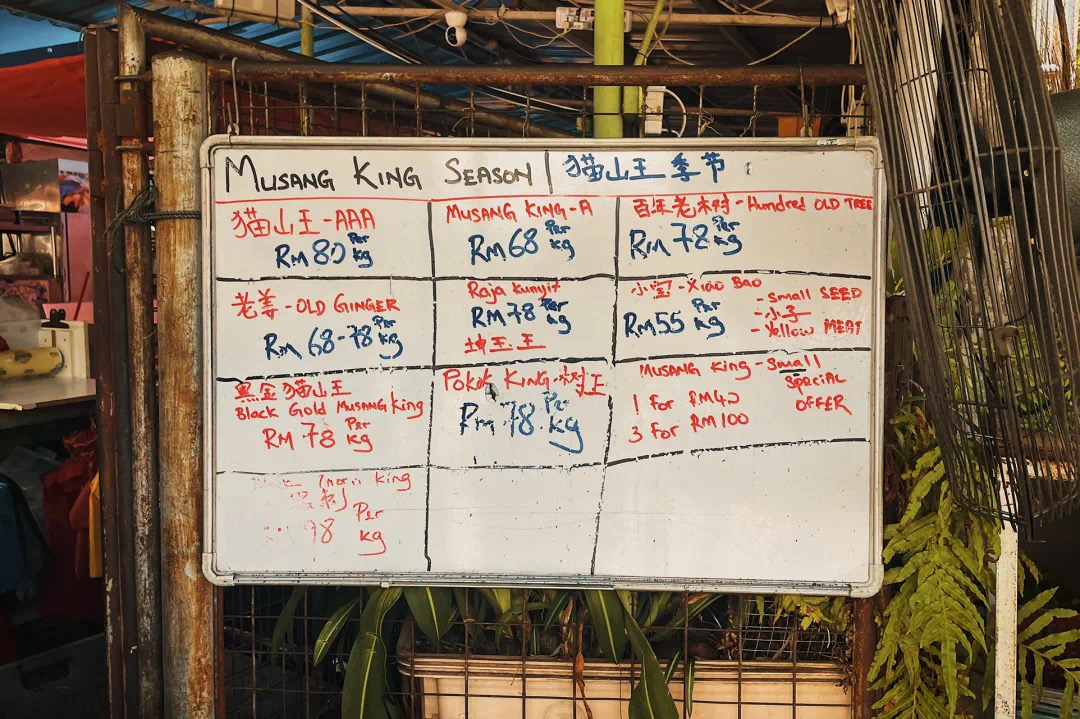 MUSANG KING SEASON | 猫山王季节
猫山王-AAA
RM 80 Per kg
MUSANG KING-A
RM 68 Per kg
百年老树-Hundred OLD TREE
RM 78 Per kg
老姜-OLD GINGER
RM 68-78 Per kg
Raja Kunyit
RM 78 Per kg
坤王王
小宝-XIAO BAO
RM55 Per kg
-Small SEED
-小子
-Yellow MEAT
黑金猫山王
Black Gold MUSANG King
RM 78 Per kg
Pokok KING-树王
RM 78 Per kg
MUSANG King-Small
SPECIAL
OFFER
1 For RM40
3 For RM100
King
黑刺
98 Per
kg